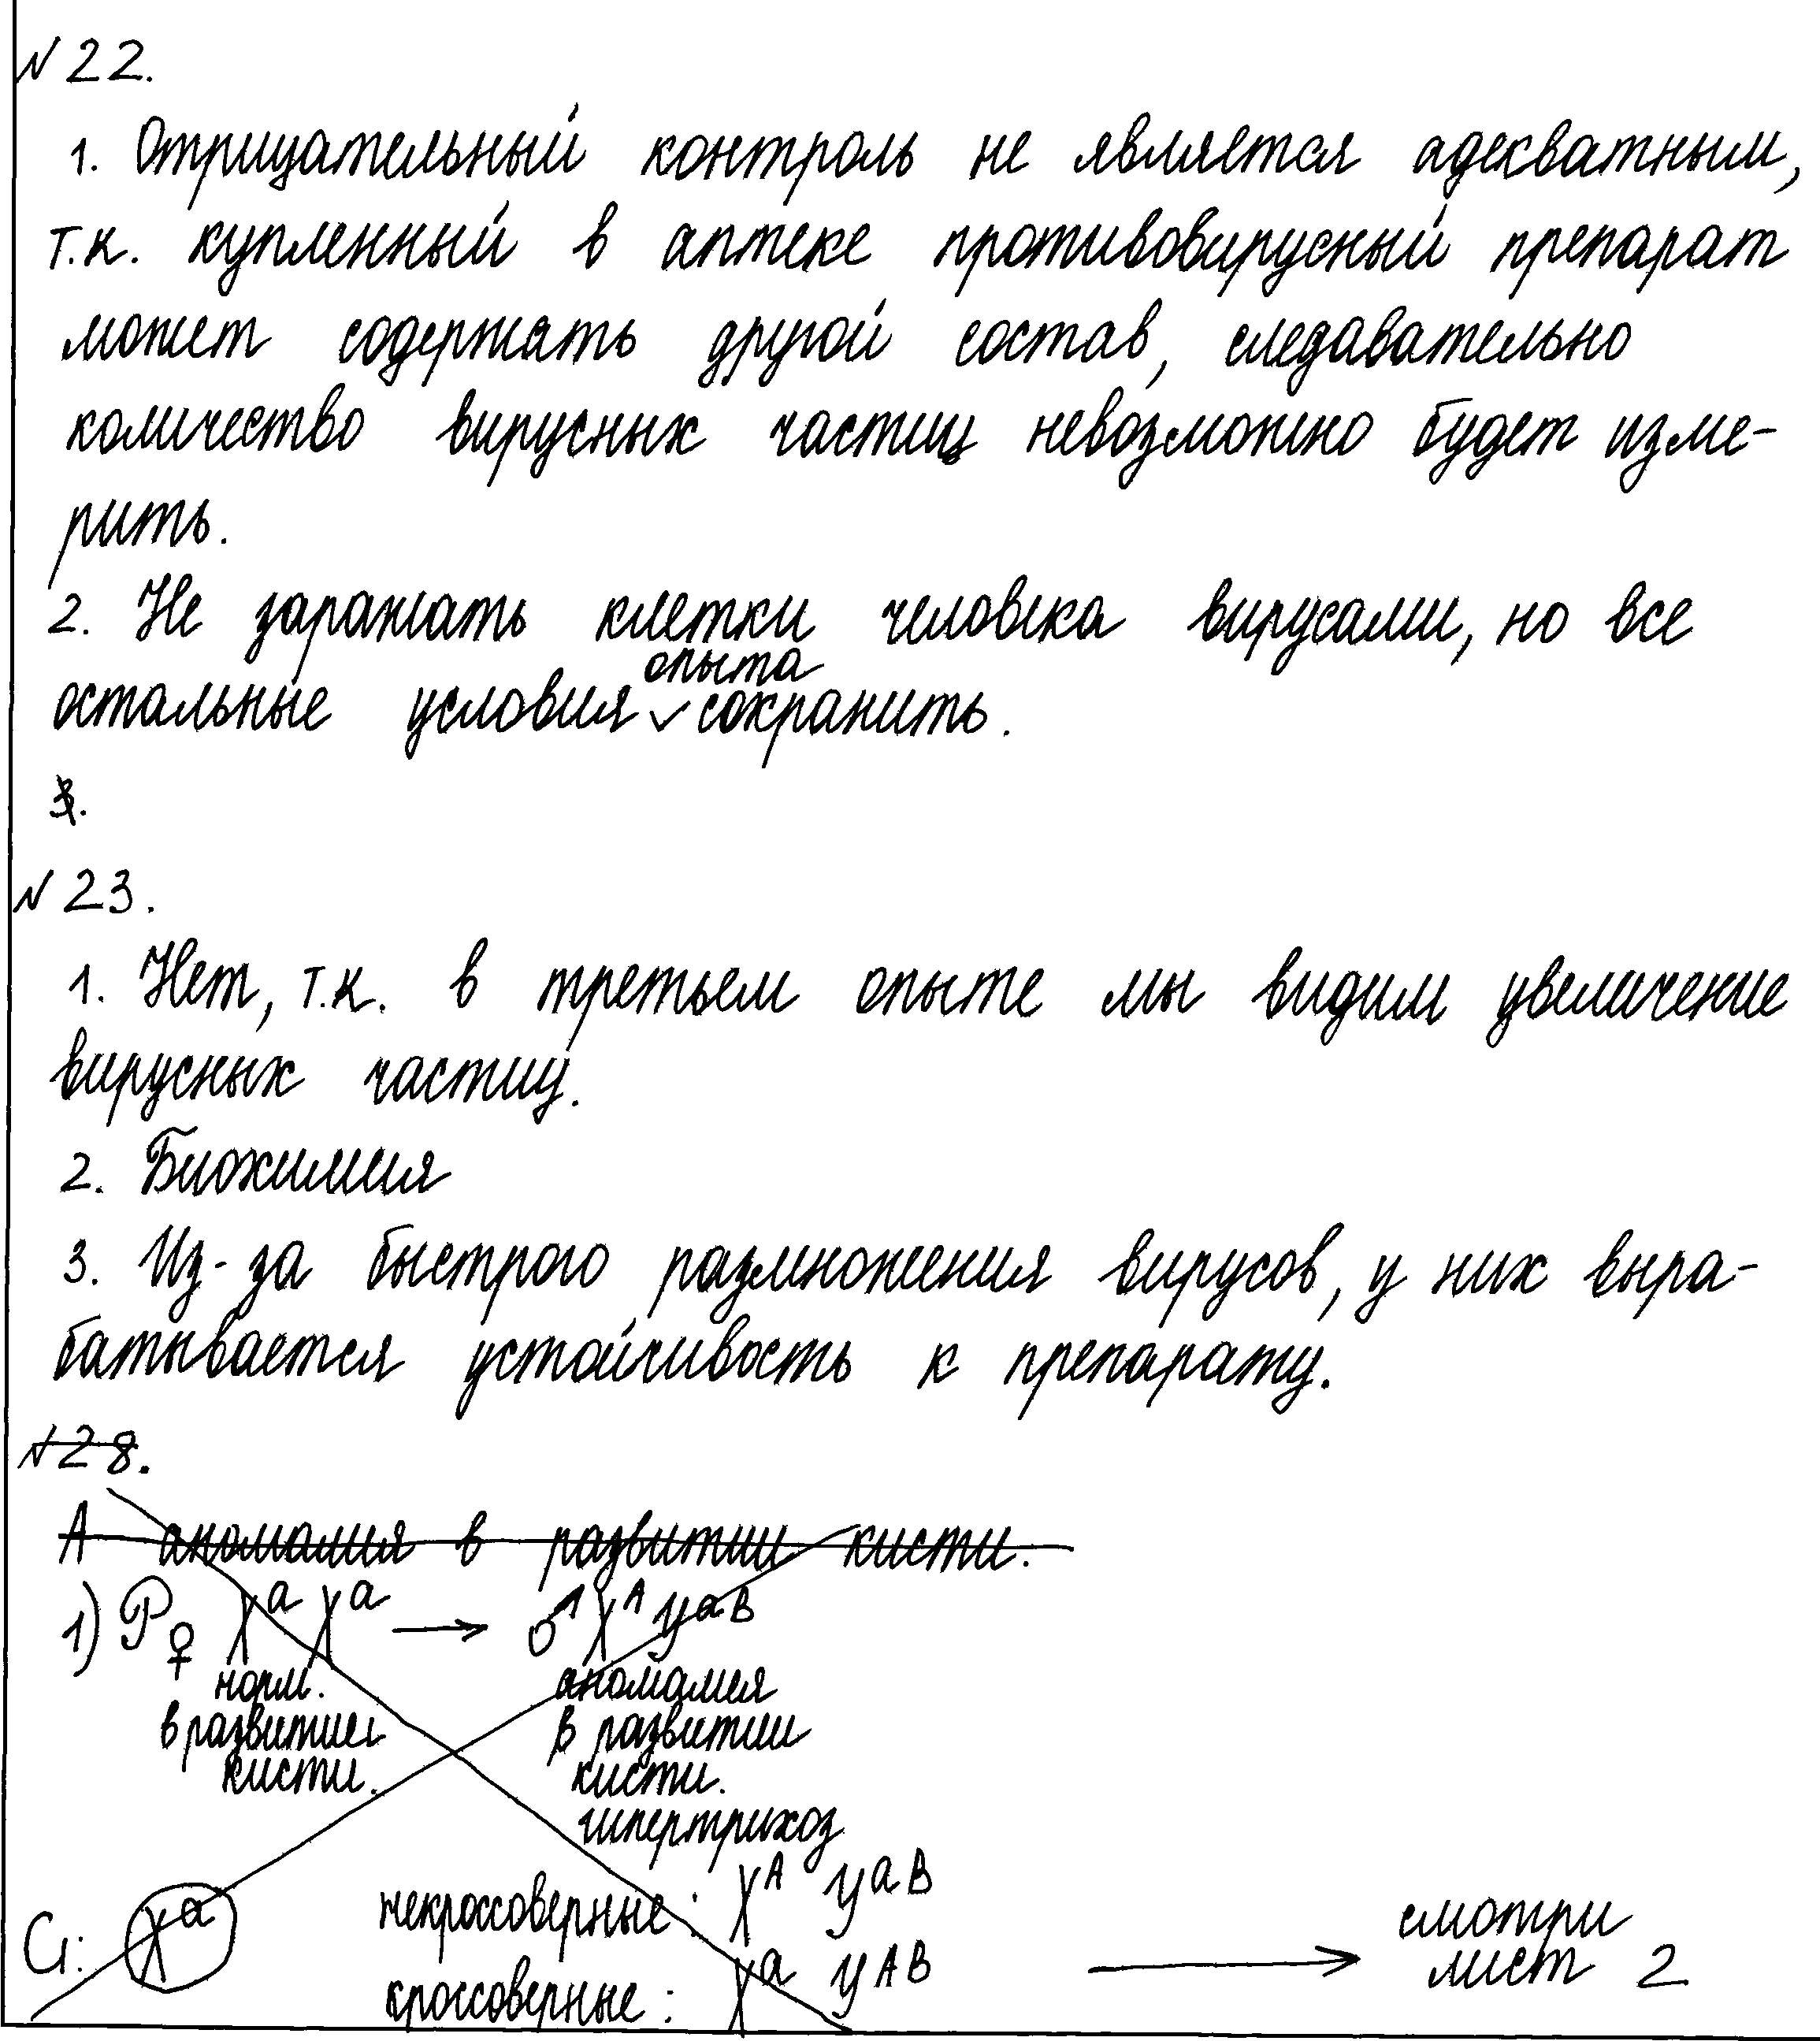 N 22.
1. Отрицательный контроль не является адекватным,
т.к. купленный в аптеке противовирусный препарат
может содержать другой состав, следавательно
количество вирусных частиц невозможно будет изме-
рить.
2. Не заражать клетки человека вирусами, но все
опыта
остальные условия ✓ сохранить.
3.
N 23.
1. Нет, т.к. в третьем опыте мы видим увеличение
вирусных частиц.
2. Биохимия
3. Из-за быстрого размножения вирусов, у них выра-
батывается устойчивость к препарату.
N 28.
А аномалия в развитии кисти.
1) P ♀ Xᵃ Xᵃ → ♂ Xᴬ yᵃᴮ
норм. аномалия
в развитии в развитии
кисти. кисти.
гипертрихоз
некроссоверные: Xᴬ yᵃᴮ
G: Xᵃ смотри
кроссоверные: Xᵃ yᴬᴮ → лист 2